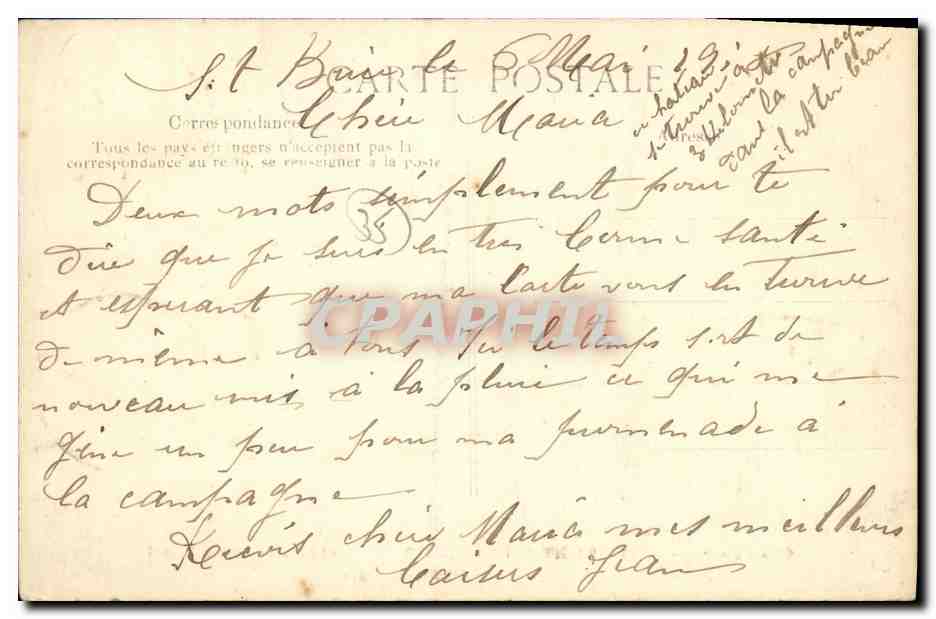 St Brieuc le 6 Mai 191
CARTE POSTALE
Chère Maria
Correspondance
Adresse
Tous les pays étrangers n'acceptent pas la
correspondance au recto, se renseigner à la poste
ce chateau
se trouve à
3 kilomètres
dans la campagne
il est très beau
Deux mots simplement pour te
35
dire que je suis en très bonne santé
et esperant que ma carte vous en trouve
de même à tous Ici le temps s'est de
nouveau mis à la pluie ce qui me
gêne un peu pour ma promenade à
la campagne
Reçois chère Maria mes meilleurs
baisers Jean
CPAPHIL